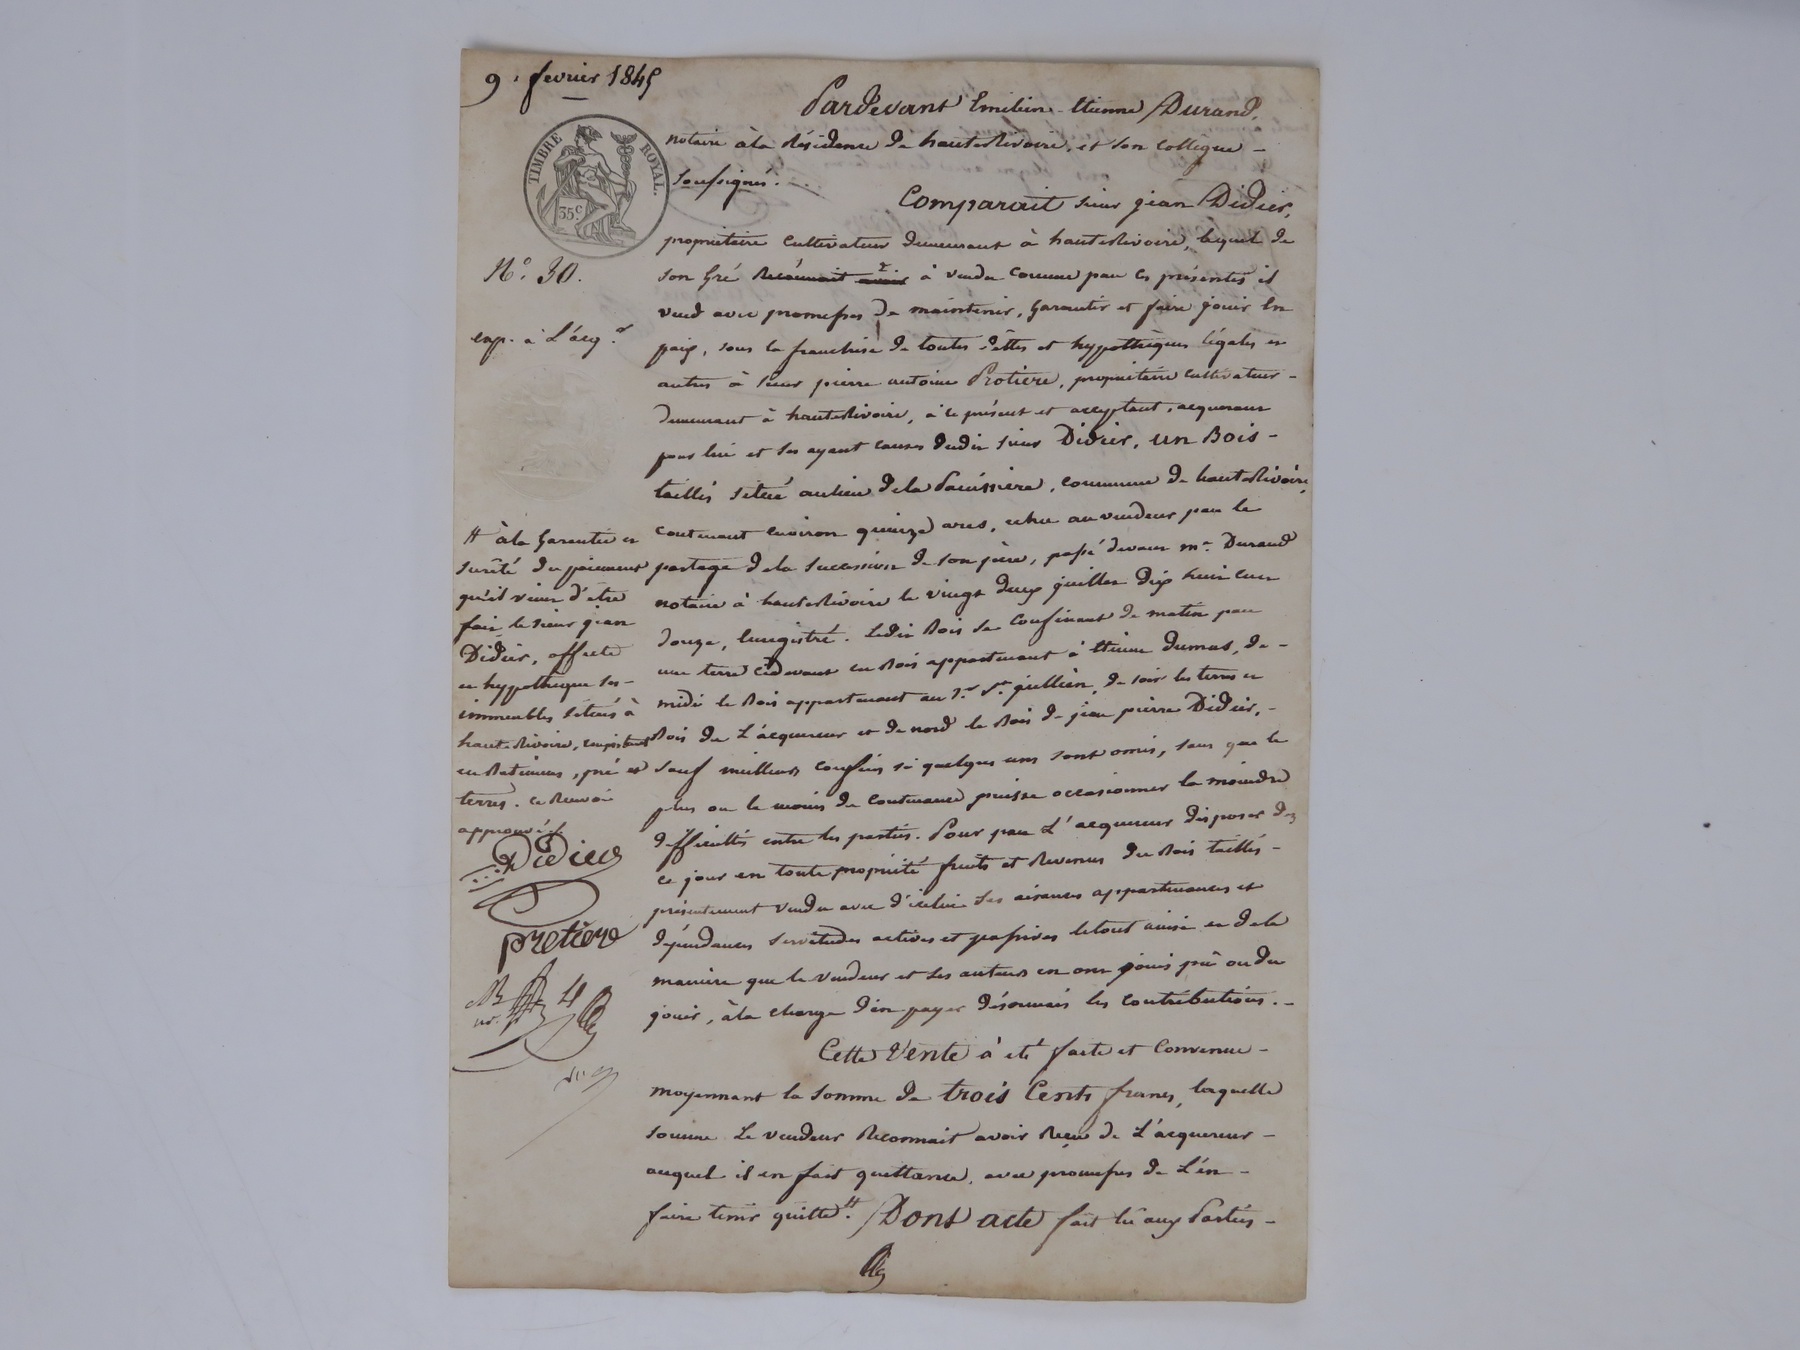 9. fevrier 1845
TIMBRE ROYAL.
35 c.
N.° 30.
exp. à L'acq.r
Pardevant Emilien-Etienne Durand,
notaire à la Résidence de hauteRivoire, et son Collègue -
Soussignés.
Comparait sieur jean Didier,
propriétaire Cultivateur demeurant à hauteRivoire, lequel de
son Gré Reconnait avoir à vendu comme par Ces présentes il
vend avec promesses De maintenir, Garantir et faire jouir En
paix, sous la franchise de toutes dèttes et hypothèques légales et
autres à sieur pierre antoine Protiere, propriétaire Cultivateur -
demeurant à hauteRivoire, à ce présent et acceptant, acquereur
pour lui et ses ayant causes dudit sieur Didier, un Bois -
taillis situé au lieu de la, commune de hauteRivoire,
contenant environ quinze ares, échu au vendeur par le
partage de la succession de son père, passé devant m.e Durand
notaire à hauteRivoire le vingt deux juillet dix huit cent
douze, Enregistré. Ledit Bois se Confinant de matin par
une terre cidevant en Bois appartenant à Etienne dumas, de -
midi le Bois appartenant au S.r, de soir les terres et
Bois de L'acquereur et de nord le Bois de jean pierre Didier, -
sauf meilleurs confins si quelques uns sont omis, sans que le
plus ou le moins de Contenance puisse occasionner la moindre
difficultés entre les parties. Pour par L'acquereur disposer dez
ce jour en toute propriété fruits et Revenus du Bois taillis -
présentement vendu avec d'icelui ses aisances appartenances et
dépendances servitudes actives et passives le tout ainsi et de la
manière que le vendeur et ses auteurs en ont joui pû ou du
jouir, à la charge d'en payer désormais les contributions. -
Cette Vente à été faite et Convenue -
moyennant la somme de trois Cents francs, laquelle
somme Le vendeur Reconnait avoir Reçu de L'acquereur -
auquel il en fait quittance, avec promesses de L'en -
faire tenir quitte #. Dont acte fait lû aux Parties -
# à la Garantie et
surêté du paiement
qu'il vient d'être
fait, le sieur jean
Didier, affecte
en hypothèque ses -
immeubles situés à
hauteRivoire, consistant
en Batiments, pré et
terres. Ce Renvoi
approuvé.
Didier
protiere